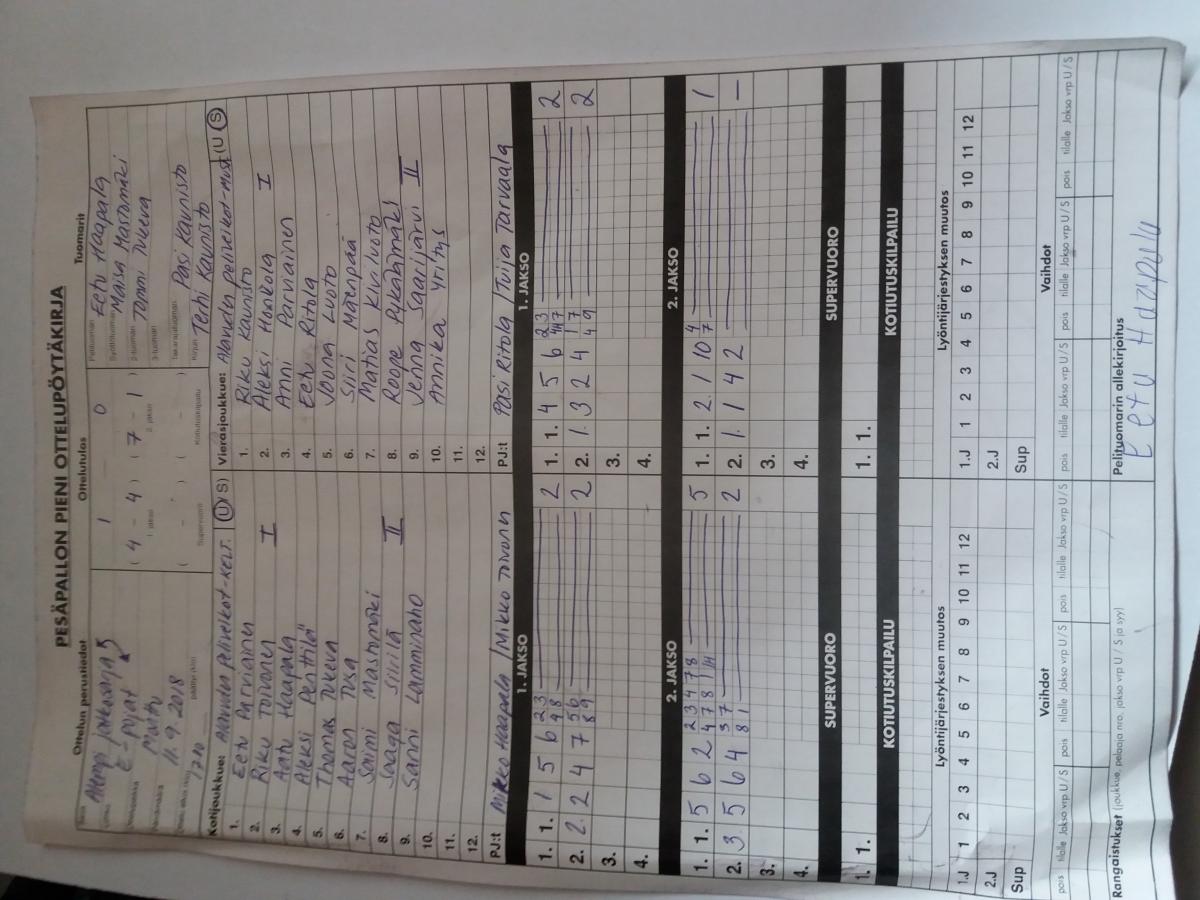 PESÄPALLON PIENI OTTELUPÖYTÄKIRJA
Ottelun perustiedot
Alempi jatkosarja 5
E-pojat
11.9.2018
Ottelutulos
1 0
( 4 - 4 ) ( 7 - 1 )
1. jakso 2. jakso
( - ) ( - )
Supervuoro Kotiutuskilpailu
Tuomarit
Pelituomari Eetu Haapala
Syöttötuomari Maisa Mastomäki
2-tuomari Tommi Tukeva
3-tuomari
Takarajatuomari Pasi Kaunisto
Kirjuri Terhi Kaunisto
Kotijoukkue: Alavuden Peliveikot-kelt. (U/S)
1. Eetu Parviainen
2. Riku Toivonen I
3. Aatu Haapala
4. Aleksi Penttilä
5. Thomas Tukeva
6. Aaron Tusa
7. Saimi Mastomäki
8. Saaga Siirilä II
9. Sanni Lamminaho
10.
11.
12.
PJ:t Mikko Haapala / Mikko Toivonen
Vierasjoukkue: Alavuden peliveikot-must (U S)
1. Riku Kaunisto
2. Aleksi Honkola I
3. Anni Parviainen
4. Eetu Ritola
5. Joona Luoto
6. Siiri Mäenpää
7. Matias Kiviluoto
8. Roope Pykälämäki
9. Jenna Saarijärvi II
10. Annika Yritys
11.
12.
PJ:t Pasi Ritola / Tuija Tarvaala
1. JAKSO
1. 1. 1 5 6 2 3 9 8 2
2. 2. 2 4 7 5 6 8 9 2
3.
4.
1. JAKSO
1. 1. 4 5 6 2 3 2
2. 1. 3 2 4 1 7 4 9 2
3.
4.
2. JAKSO
1. 1. 5 6 2 2 3 4 7 8 4 7 8 1 5
2. 3. 5 6 4 3 7 8 1 2
3.
4.
2. JAKSO
1. 1. 2. 1 10 4 7 1
2. 1. 1 4 2 —
3.
4.
SUPERVUORO
1. 1.
SUPERVUORO
1. 1.
KOTIUTUSKILPAILU
KOTIUTUSKILPAILU
Lyöntijärjestyksen muutos
1.J 1 2 3 4 5 6 7 8 9 10 11 12
2.J
Sup
Lyöntijärjestyksen muutos
1.J 1 2 3 4 5 6 7 8 9 10 11 12
2.J
Sup
Vaihdot
pois tilalle Jakso vrp U/S pois tilalle Jakso vrp U/S pois tilalle Jakso vrp U/S
Vaihdot
pois tilalle Jakso vrp U/S pois tilalle Jakso vrp U/S pois tilalle Jakso vrp U/S
Rangaistukset (joukkue, pelaaja nro, jakso vrp U / S ja syy)
Pelituomarin allekirjoitus
Eetu Haapala